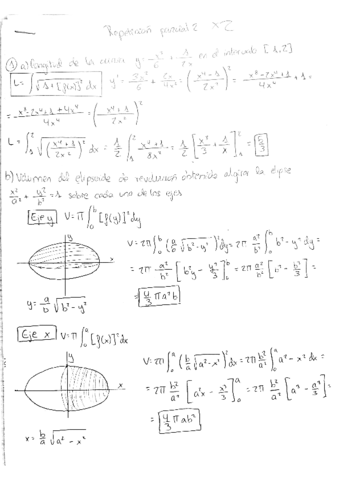 Repetición parcial 2 x2
① a) Longitud de la curva y = x³/6 + 1/2x en el intervalo [1,2]
L = ∫ √(1 + [f(x)]²) dx
= x⁸ - 2x⁴ + 1 + 4x⁴ / 4x⁴ = (x⁴ + 1 / 2x²)²
b) Volumen del elipsoide de revolución obtenido al girar la elipse
x²/a² + y²/b² = 1 sobre cada uno de los ejes
Eje y V = π ∫₀ᵇ [f(y)]² dy
y
x
V = 2π ∫₀ᵇ (a/b √(b² - y²))² dy = 2π a²/b² ∫₀ᵇ b² - y² dy =
= 2π a²/b² [b²y - y³/3]₀ᵇ = 2π a²/b² [b³ - b³/3] =
= 4/3 π a²b
y = a/b √(b² - y²)
Eje x V = π ∫₀ᵃ [f(x)]² dx
y
x
V = 2π ∫₀ᵃ (b/a √(a² - x²))² dx = 2π b²/a² ∫₀ᵃ a² - x² dx =
= 2π b²/a² [a²x - x³/3]₀ᵃ = 2π b²/a² [a³ - a³/3] =
= 4/3 π ab²
x = b/a √(a² - x²)